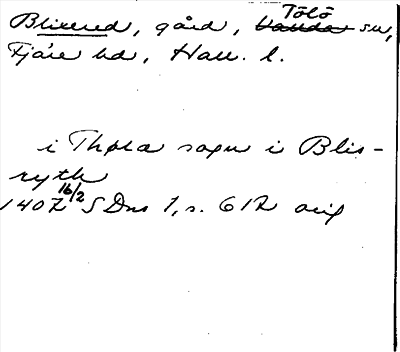 Blixered, gård, Tölö sn,
Fjäre hd, Hall. l.
i Thøla sogn i Blis-
ryth
1407 16/2 SDns 1, s. 612 orig